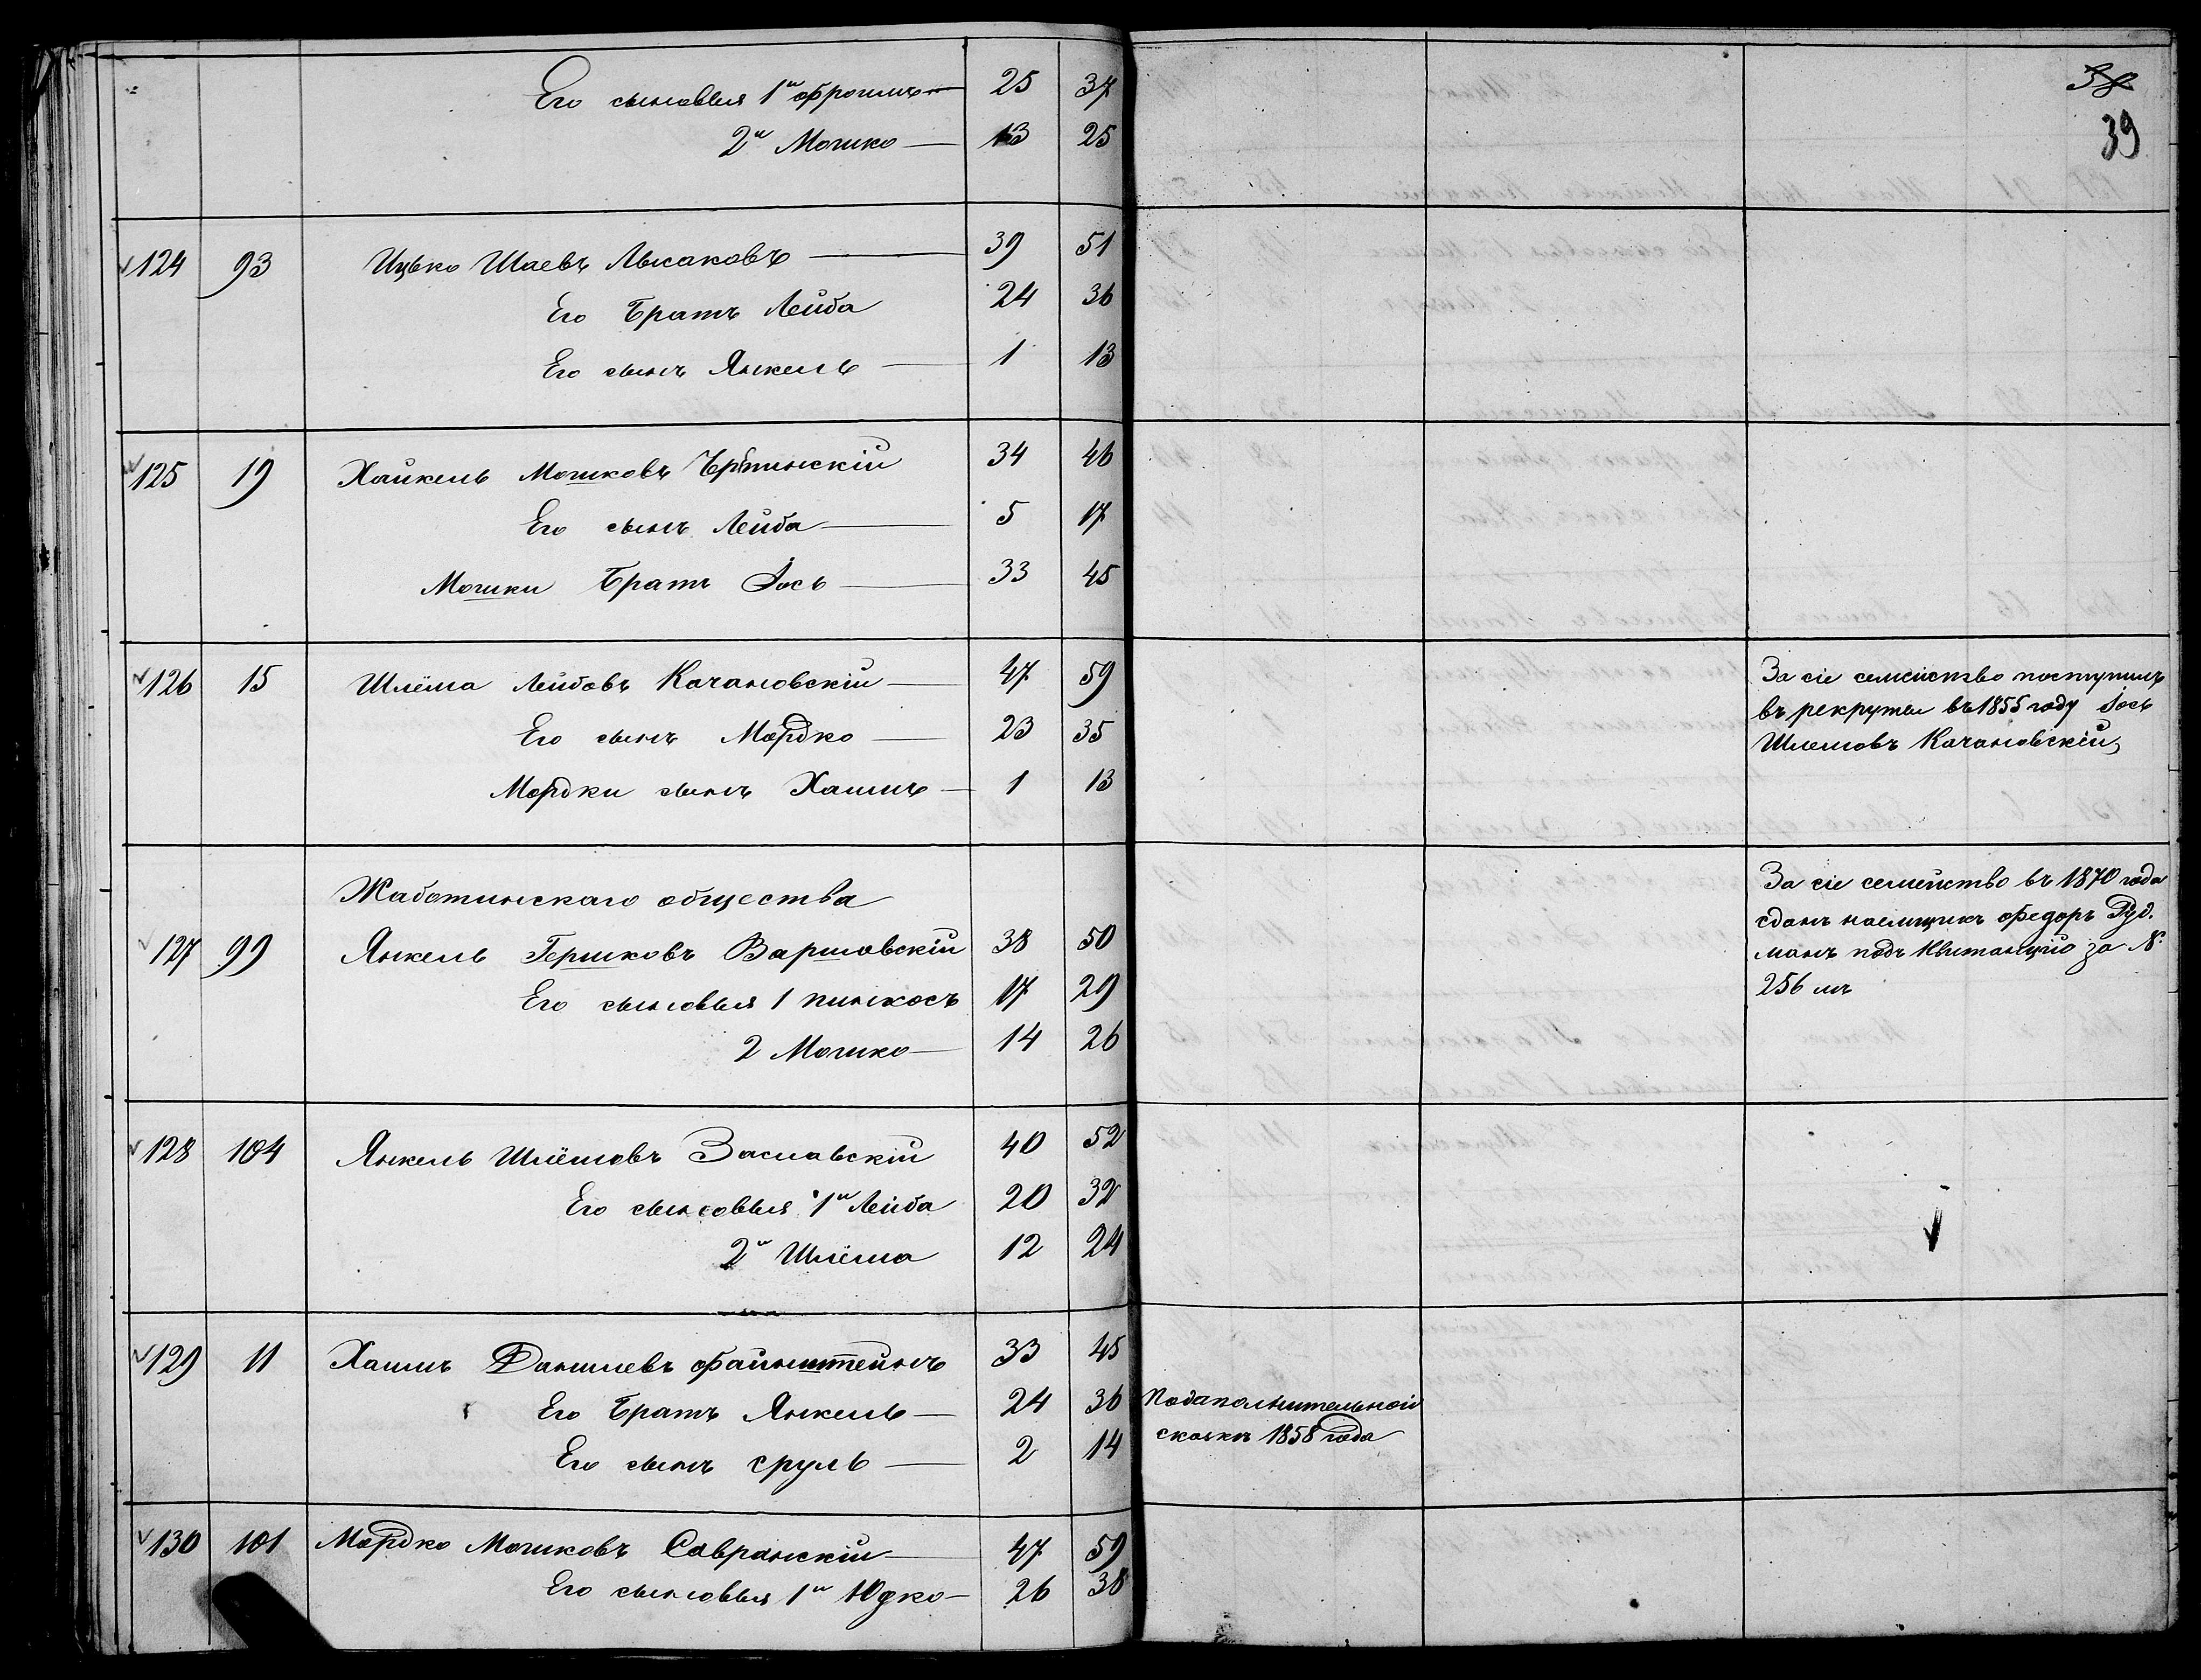 38
39
Его сыновья 1й Фроимъ 25 37
2й Мошко 13 25
124 93 Ицько Шаевъ Лысаковъ 39 51
Его Братъ Лейба 24 36
Его сынъ Янкель 1 13
125 19 Хайкель Мошковъ 34 46
Его сынъ Лейба 5 17
Мошки Братъ Іось 33 45
126 15 Шлёма Лейбовъ Качановскій 47 59
Его сынъ Мордко 23 35
Мордки сынъ Хаимъ 1 13
За сіе семейство поступилъ
въ рекруты въ 1855 году Іось
Шлемовъ Качановскій
Жаботинскаго общества
127 99 Янкель Гершковъ Варшавскій 38 50
Его сыновья 1 пинхосъ 17 29
2 Мошко 14 26
За сіе семейство въ 1870 года
сданъ наемщикъ Федоръ Руд.
манъ подъ Квитанцію за №
256 мъ
128 104 Янкель Шлёмовъ Заславскій 40 52
Его сыновья 1й Лейба 20 32
2й Шлёма 12 24
129 11 Хаимъ Данилевъ Файнштейнъ 33 45
Его Братъ Янкель 24 36
Его сынъ сруль 2 14
Подаполнительной
сказкъ 1858 года
130 101 Мордко Мошковъ Савранскій 47 59
Его сыновья 1й Юдко 26 38